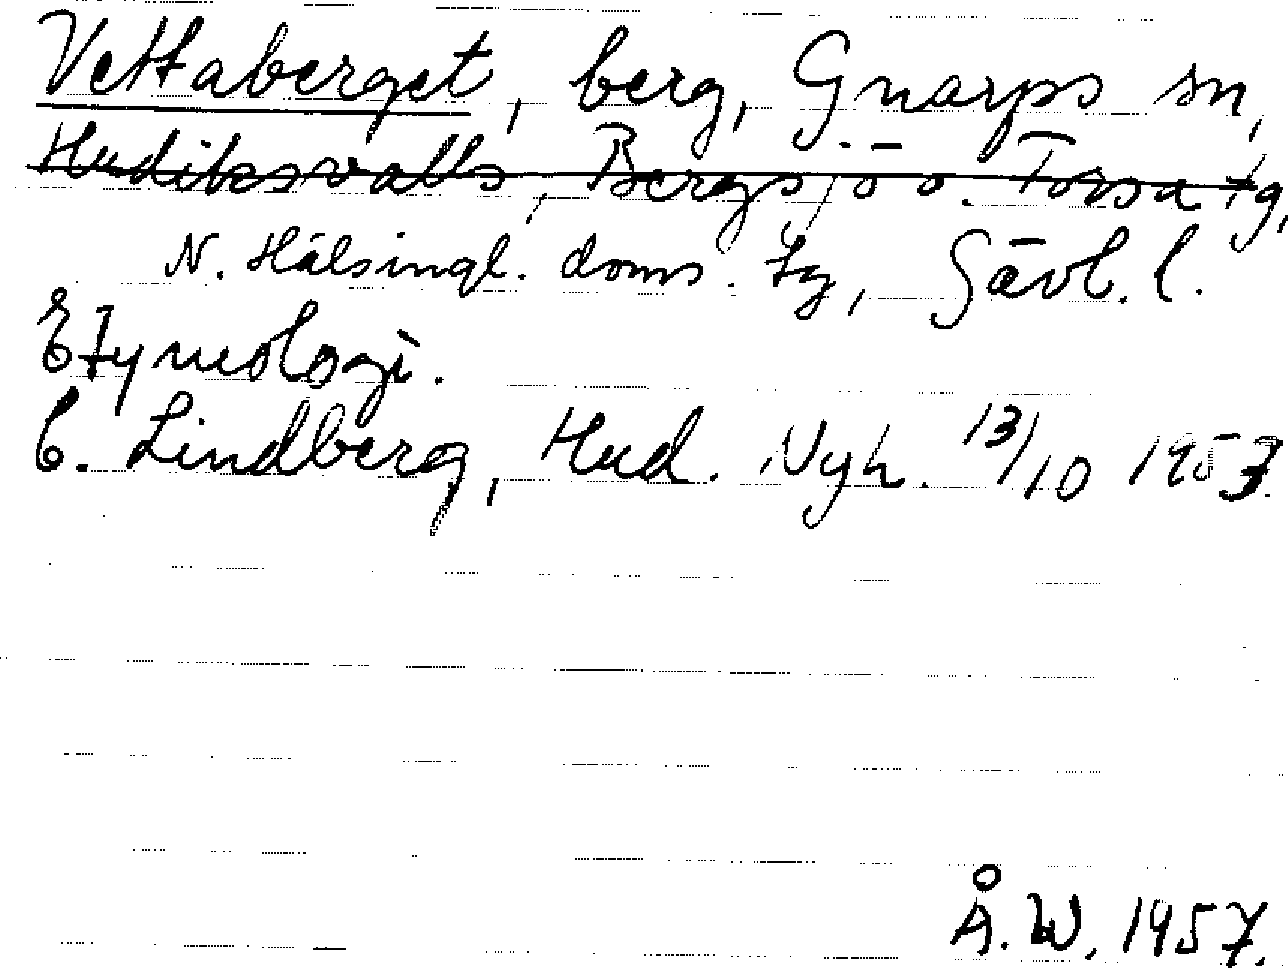 Vettaberget, berg, Gnarps sn,
Hudiksvalls, Bergsjö o. Forsa tg,
N. Hälsingl. doms. tg, Gävl. l.
Etymologi.
C. Lindberg, Hud. Nyh. 13/10 1953.
Å.W. 1957.